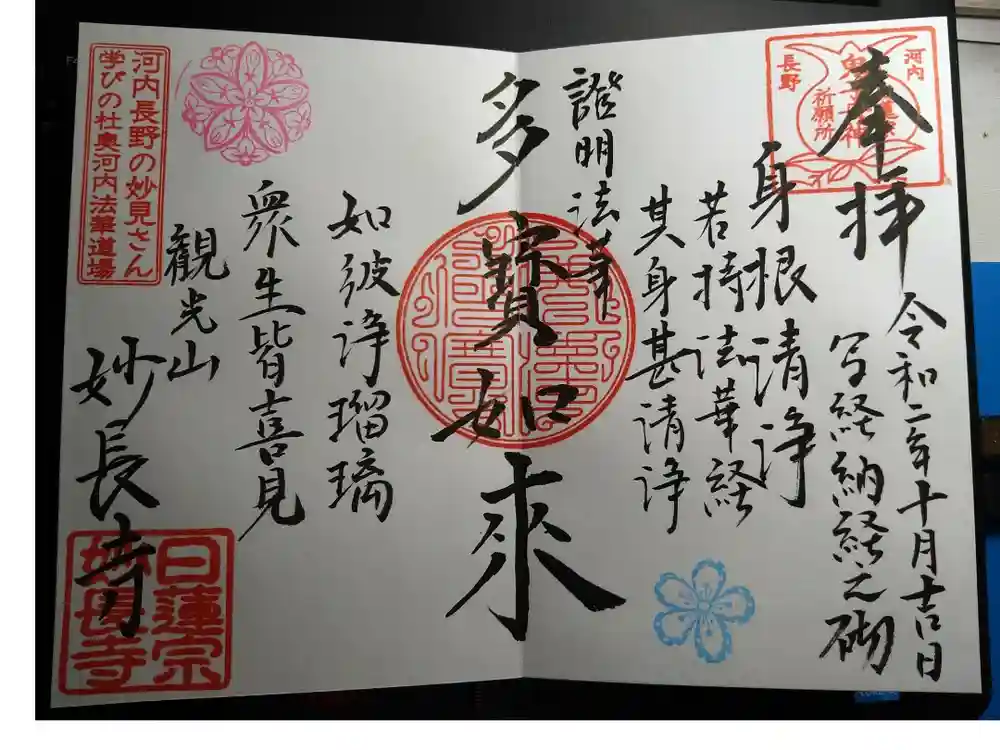 奉拝
令和二年十月吉日
写経納経之砌
身根清浄
若持法華経
其身甚清浄
證明法華
多寶如来
如彼浄瑠璃
衆生皆喜見
観光山
妙長寺
河内
長野
祈願所
河内長野の妙見さん
学びの社奥河内法華道場
日蓮宗
妙長寺